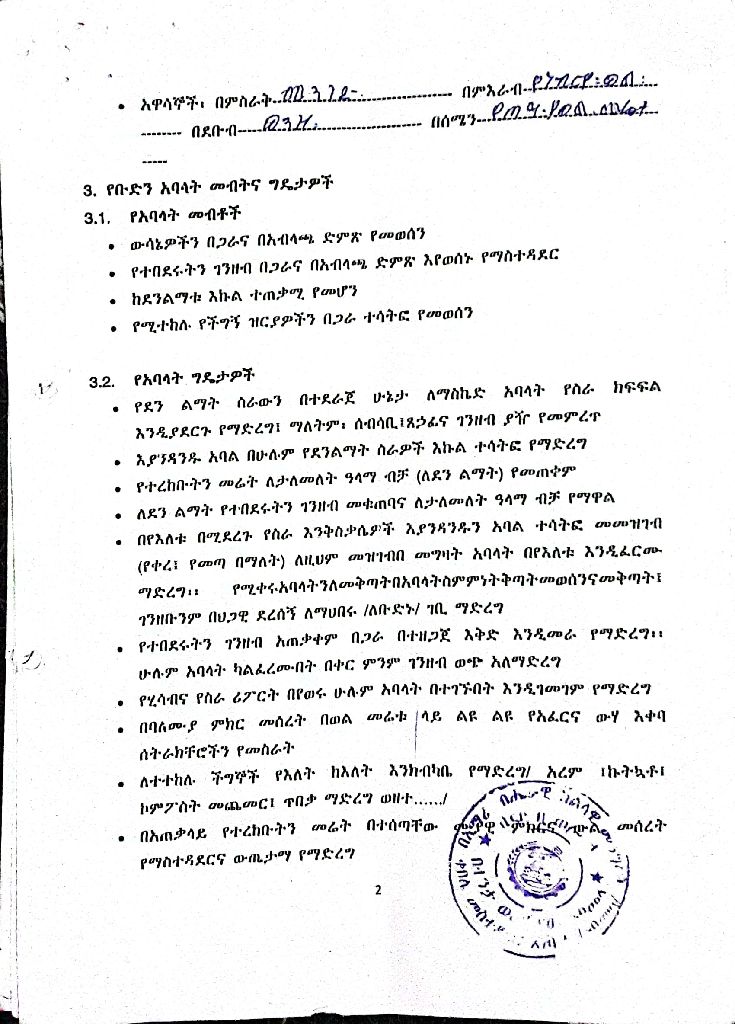 • አዋሳኞች፡ በምስራቅ መንገድ በምእራብ የነብርዋ፡ወል፡
-------- በደቡብ ወንዝ በሰሜን
-----
3. የቡድን አባላት መብትና ግዴታዎች
3.1. የአባላት መብቶች
• ውሳኔዎችን በጋራና በአብላጫ ድምጽ የመወሰን
• የተበደሩትን ገንዘብ በጋራና በአብላጫ ድምጽ እየወሰኑ የማስተዳደር
• ከደንልማቱ እኩል ተጠቃሚ የመሆን
• የሚተከሉ የችግኝ ዝርያዎችን በጋራ ተሳትፎ የመወሰን
3.2. የአባላት ግዴታዎች
• የደን ልማት ስራውን በተደራጀ ሁኔታ ለማስኬድ አባላት የስራ ክፍፍል
እንዲያደርጉ የማድረግ፤ ማለትም፡ ሰብሳቢ፤ጸኃፊና ገንዘብ ያዥ የመምረጥ
• እያንዳንዱ አባል በሁሉም የደንልማት ስራዎች እኩል ተሳትፎ የማድረግ
• የተረከቡትን መሬት ለታለመለት ዓላማ ብቻ (ለደን ልማት) የመጠቀም
• ለደን ልማት የተበደሩትን ገንዘብ መቁጠባና ለታለመለት ዓላማ ብቻ የማዋል
• በየእለቱ በሚደረጉ የስራ እንቅስቃሴዎች እያንዳንዱን አባል ተሳትፎ መመዝገብ
(የቀረ፤ የመጣ በማለት) ለዚህም መዝገብበ መግዛት አባላት በየእለቱ እንዲፈርሙ
ማድረግ፡፡ የሚቀሩአባላትንለመቅጣትበአባላትስምምነትቅጣትመወሰንናመቅጣት፤
ገንዘቡንም በህጋዊ ደረሰኝ ለማህበሩ /ለቡድኑ/ ገቢ ማድረግ
• የተበደሩትን ገንዘብ አጠቃቀም በጋራ በተዘጋጀ እቅድ እንዲመራ የማድረግ፡፡
ሁሉም አባላት ካልፈረሙበት በቀር ምንም ገንዘብ ወጭ አለማድረግ
• የሂሳብና የስራ ሪፖርት በየወሩ ሁሉም አባላት በተገኙበት እንዲገመገም የማድረግ
• በባለሙያ ምክር መሰረት በወል መሬቱ ላይ ልዩ ልዩ የአፈርና ውሃ እቀባ
ሰትራክቸሮችን የመስራት
• ለተተከሉ ችግኞች የእለት ከእለት እንክብካቤ የማድረግ/ አረም ፤ኩትኳቶ፤
ኮምፖስት መጨመር፤ ጥበቃ ማድረግ ወዘተ....../
• በአጠቃላይ የተረከቡትን መሬት በተሰጣቸው ምክርና ውል መሰረት
የማስተዳደርና ውጤታማ የማድረግ
2